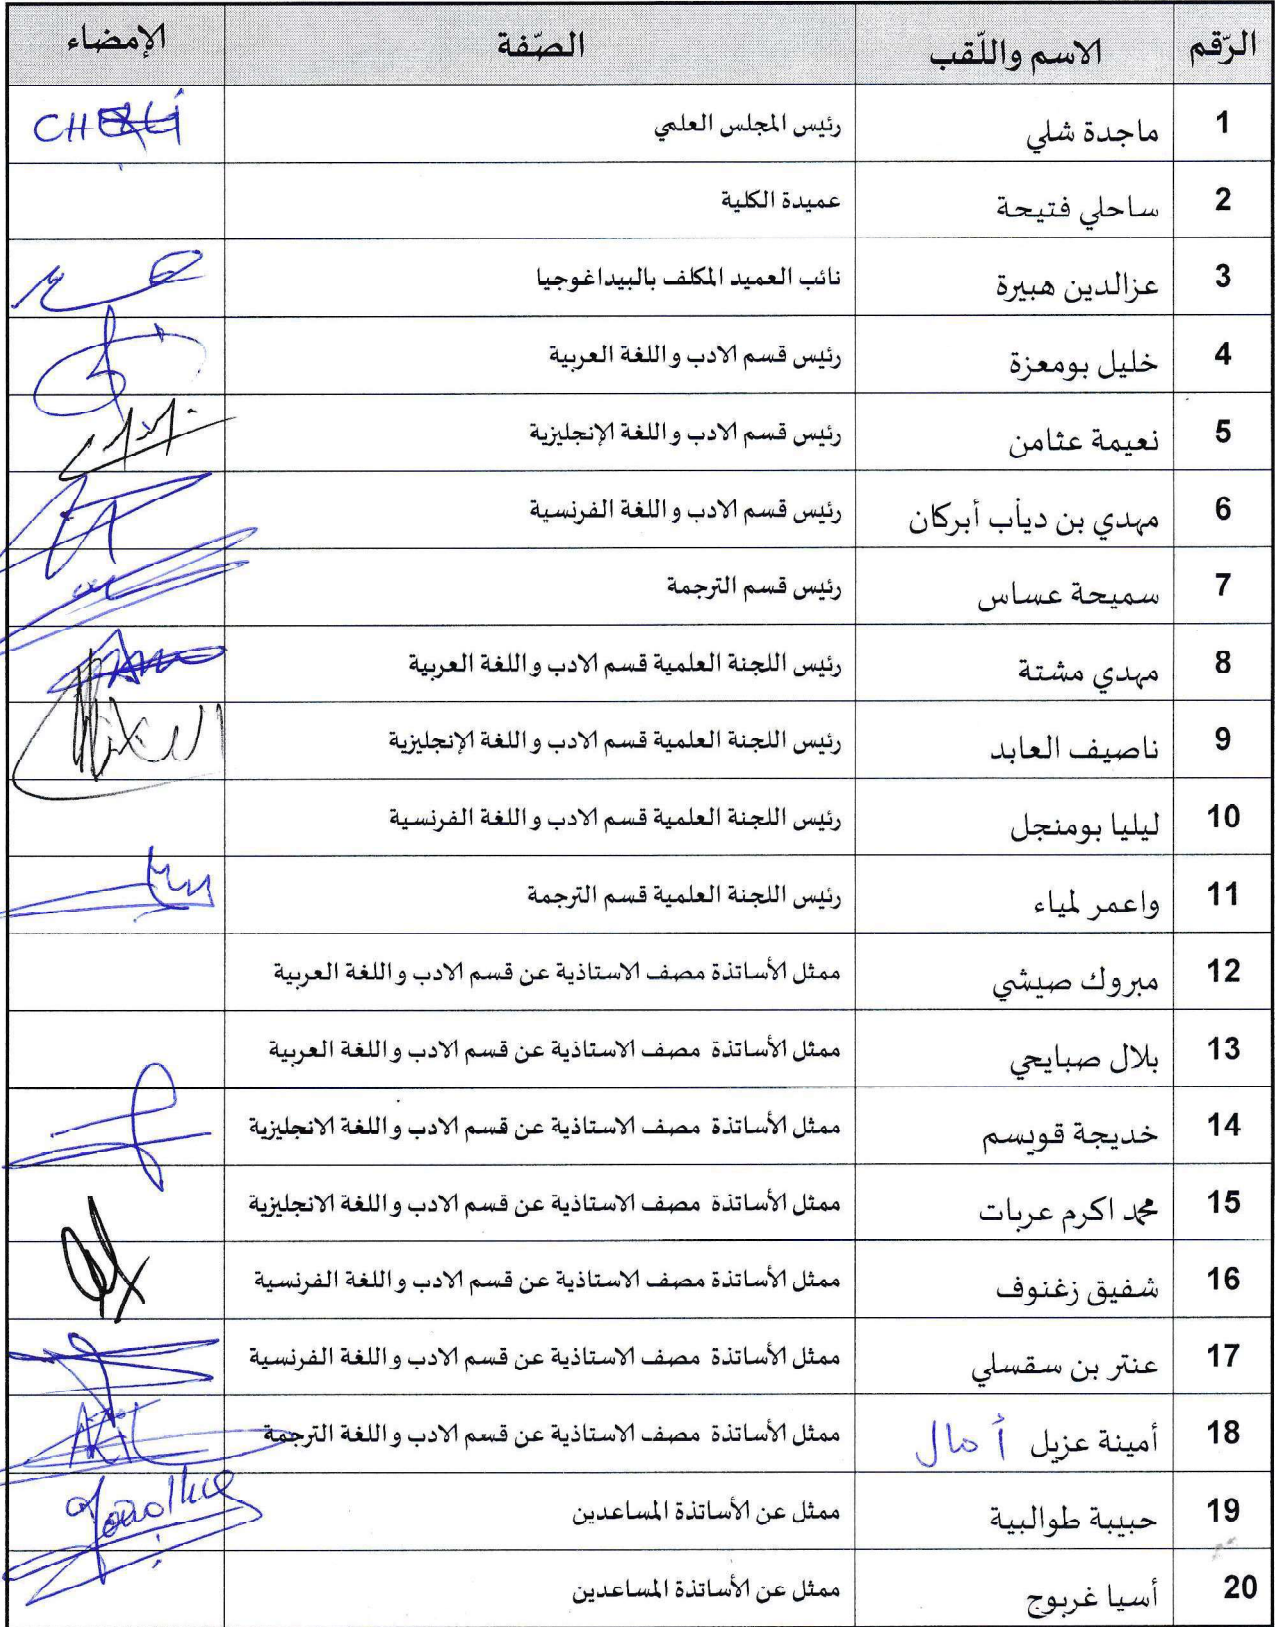 الرّقم الاسم واللّقب الصّفة الإمضاء
1 ماجدة شلي رئيس المجلس العلمي
2 ساحلي فتيحة عميدة الكلية
3 عزالدين هبيرة نائب العميد المكلف بالبيداغوجيا
4 خليل بومعزة رئيس قسم الادب و اللغة العربية
5 نعيمة عثامن رئيس قسم الادب و اللغة الإنجليزية
6 مهدي بن دياب أبركان رئيس قسم الادب و اللغة الفرنسية
7 سميحة عساس رئيس قسم الترجمة
8 مهدي مشتة رئيس اللجنة العلمية قسم الادب و اللغة العربية
9 ناصيف العابد رئيس اللجنة العلمية قسم الادب و اللغة الإنجليزية
10 ليليا بومنجل رئيس اللجنة العلمية قسم الادب و اللغة الفرنسية
11 واعمر لمياء رئيس اللجنة العلمية قسم الترجمة
12 مبروك صيشي ممثل الأساتذة مصف الاستاذية عن قسم الادب و اللغة العربية
13 بلال صبايحي ممثل الأساتذة مصف الاستاذية عن قسم الادب و اللغة العربية
14 خديجة قويسم ممثل الأساتذة مصف الاستاذية عن قسم الادب و اللغة الانجليزية
15 محمد اكرم عربات ممثل الأساتذة مصف الاستاذية عن قسم الادب و اللغة الانجليزية
16 شفيق زغنوف ممثل الأساتذة مصف الاستاذية عن قسم الادب و اللغة الفرنسية
17 عنتر بن سقسلي ممثل الأساتذة مصف الاستاذية عن قسم الادب و اللغة الفرنسية
18 أمينة عزيل أمال ممثل الأساتذة مصف الاستاذية عن قسم الادب و اللغة الترجمة
19 حبيبة طوالبية ممثل عن الأساتذة المساعدين
20 أسيا غربوج ممثل عن الأساتذة المساعدين